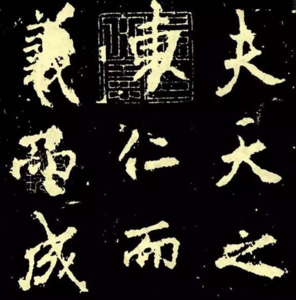 夫天之
東仁而
義而成